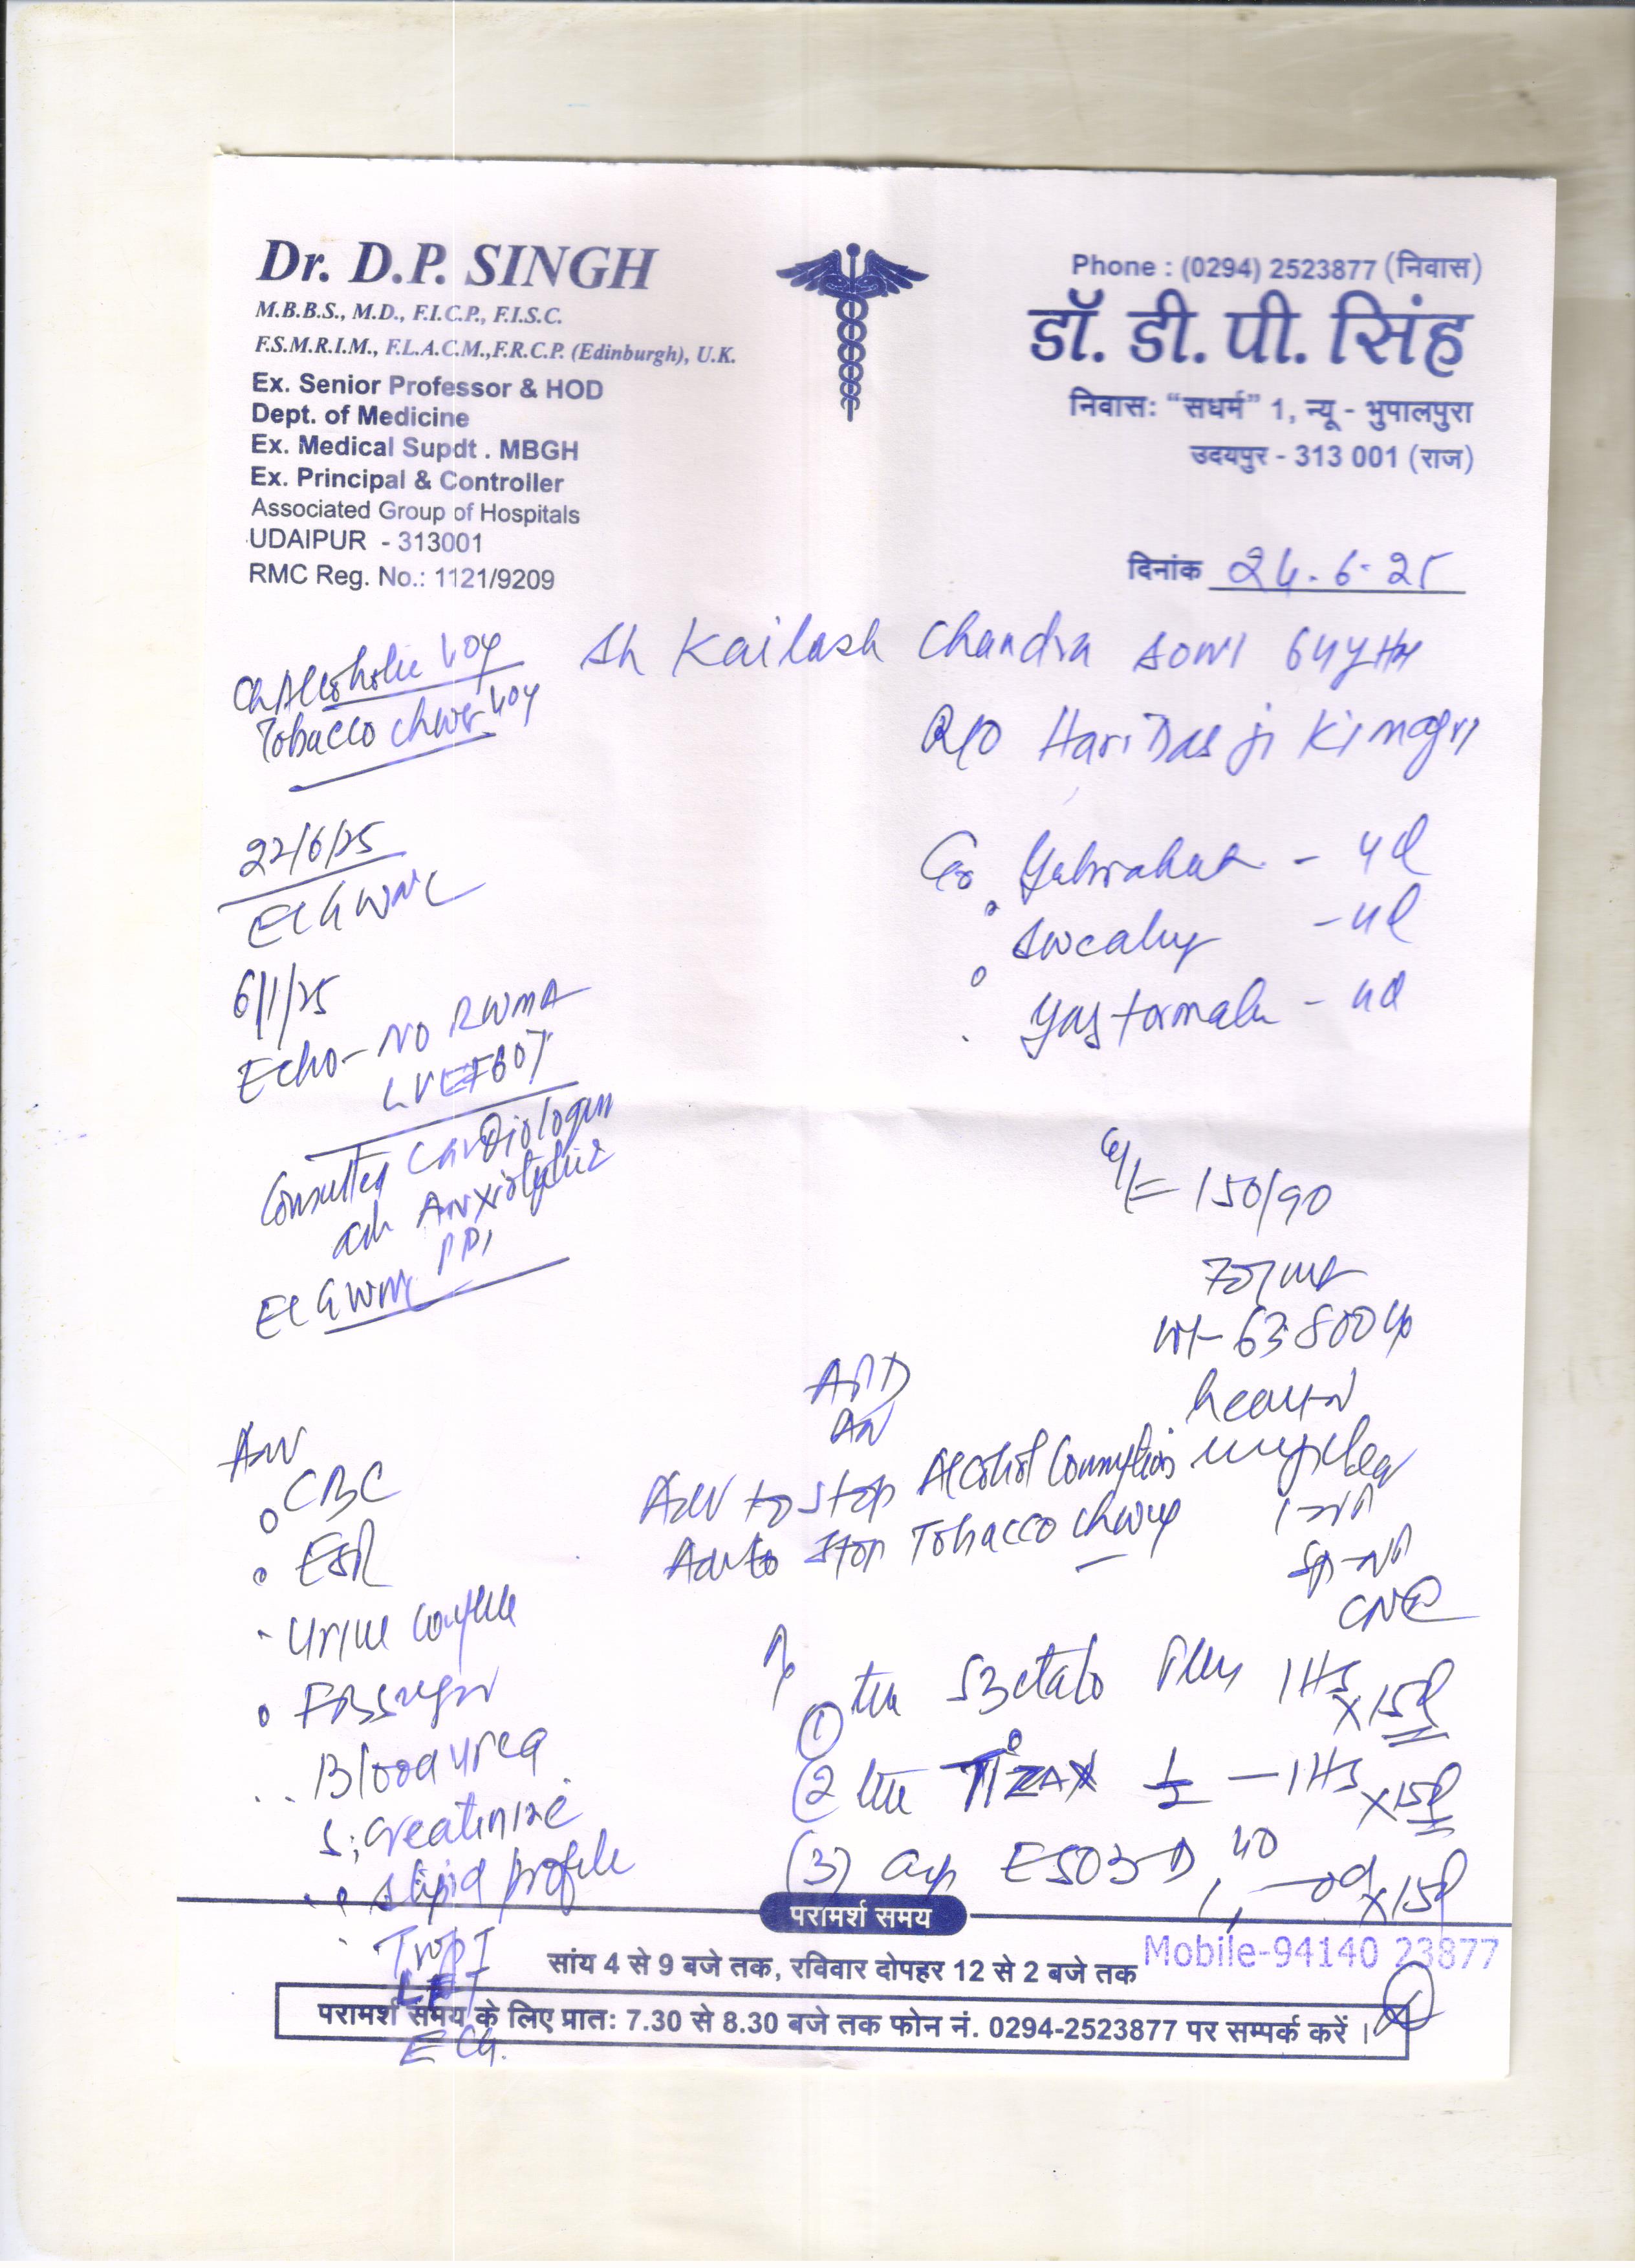 Dr. D.P. SINGH
M.B.B.S., M.D., F.I.C.P., F.I.S.C.
F.S.M.R.I.M., F.L.A.C.M.,F.R.C.P. (Edinburgh), U.K.
Ex. Senior Professor & HOD
Dept. of Medicine
Ex. Medical Supdt . MBGH
Ex. Principal & Controller
Associated Group of Hospitals
UDAIPUR - 313001
RMC Reg. No.: 1121/9209
Phone : (0294) 2523877 (निवास)
डॉ. डी. पी. सिंह
निवास: “सधर्म” 1, न्यू - भुपालपुरा
उदयपुर - 313 001 (राज)
दिनांक 24.6.25
Sh Kailash Chandra soni 64y
R/O Hari Das ji Ki magri
Ch Alcoholic 40y
Tobacco chewer 40y
22/6/25
ECG WNL
6/1/25
Echo - NO RWMA
LVEF 60%
Consulted Cardiologist
adv Anxiolytic
PPI
ECG WNL
Gabrahat - 4d
Sweating - 4d
- 4d
150/90
70/mt
wt- 63.800
heart-N
APD
AN
Adv to stop Alcohol Consumption
Adv to stop Tobacco chewing
CNS
Inv
CBC
ESR
Urine complete
FB Sugar
Blood urea
S. creatinine
S lipid profile
Trop I
LFT
ECG.
(1) tab S3etalo Plus 1HS x15d
(2) tab TiZAX ½ - 1HS x15d
(3) cap ESO3-D, 40 - od x15d
परामर्श समय
सांय 4 से 9 बजे तक, रविवार दोपहर 12 से 2 बजे तक
Mobile-94140 23877
परामर्श समय के लिए प्रात: 7.30 से 8.30 बजे तक फोन नं. 0294-2523877 पर सम्पर्क करें ।